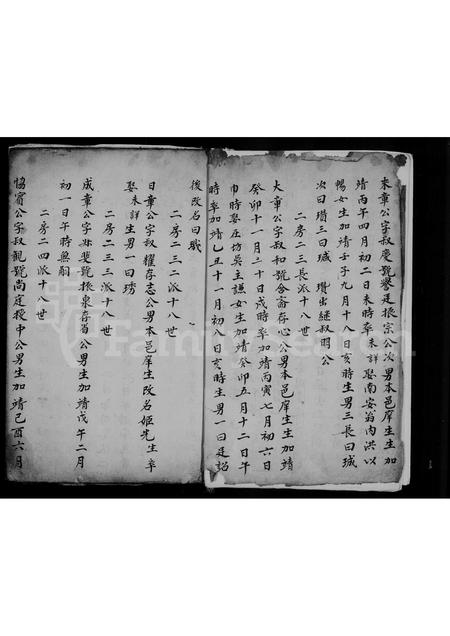 來章公字叔慶號譽廷振宗公次男本邑庠生生加
靖丙午四月初二日未時卒未詳娶南安翁內洪以
暢女生加靖壬子九月十八日亥時生男三長曰瑊
次曰瓚三曰瑊 瓚出繼叔明公
二房二三長派十八世
大章公字叔和號含齋存心公男本邑庠生生加靖
癸卯十一月二十日戌時卒加靖丙寅七月初六日
巾時娶庄坊吳主謙女生加靖癸卯五月十二日午
時卒加靖乙丑十一月初八日亥時生男一曰廷詔
後改名曰
二房二三二派十八世
日章公字叔耀存志公男本邑庠生改名姬先生卒
娶未詳生男一曰琇
二房二三三派十八世
成章公字叔斐號振東存省公男生加靖戊午二月
初一日午時無嗣
二房二四派十八世
恊賓公字叔觀號尚庭授中公男生加靖己酉六月
FamilySearch